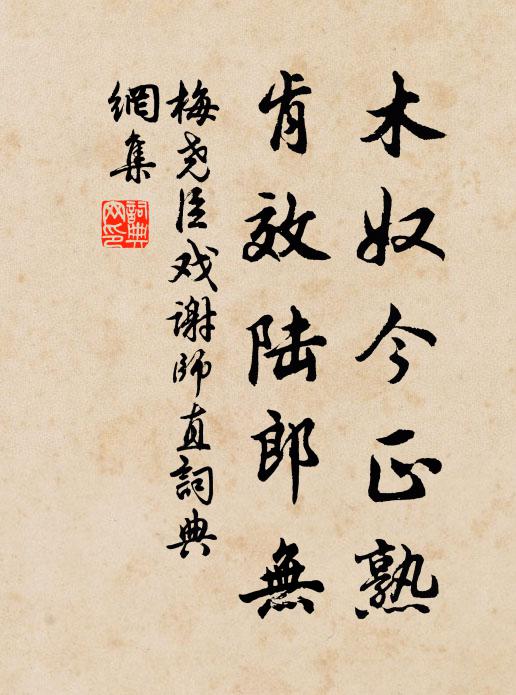 木奴今正熟
肯效陆郎無
梅尧臣戏谢师直詞典
網集
詞典网印